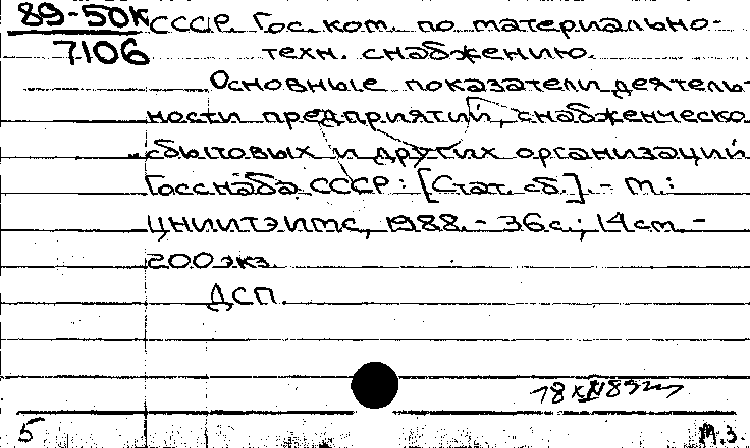 89-50К СССР. Гос. ком. по материально-
7106 техн. снабжению.
Основные показатели деятель-
ности предприятий, снабженческо
-сбытовых и других организаций
Госснаба СССР: [Стат. сб.]. - М.:
ЦНИИТЭИМС, 1988. - 36 с.; 14 см. -
200 экз.
ДСП.
5 М.З.